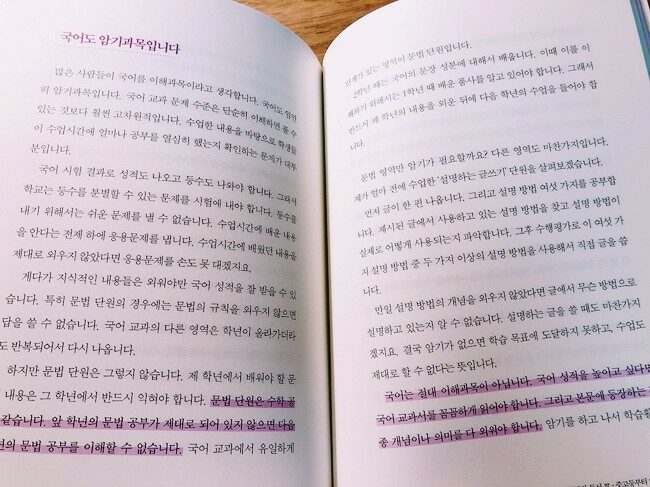 국어도 암기과목입니다
많은 사람들이 국어를 이해과목이라고 생각합니다. 국어도 엄연
히 암기과목입니다. 국어 교과 문제 수준은 단순히 이해하면 풀 수
있는 것보다 훨씬 고차원적입니다. 수업한 내용을 바탕으로 학생들
이 수업시간에 얼마나 공부를 열심히 했는지 확인하는 문제가 대부
분입니다.
국어 시험 결과로 성적도 나오고 등수도 나와야 합니다. 그래서
학교는 등수를 분별할 수 있는 문제를 시험에 내야 합니다. 등수를
내기 위해서는 쉬운 문제를 낼 수 없습니다. 수업시간에 배운 내용
을 안다는 전제 하에 응용문제를 냅니다. 수업시간에 배웠던 내용을
제대로 외우지 않았다면 응용문제를 손도 못 대겠지요.
게다가 지식적인 내용들은 외워야만 국어 성적을 잘 받을 수 있
습니다. 특히 문법 단원의 경우에는 문법의 규칙을 외우지 않으면
답을 쓸 수 없습니다. 국어 교과의 다른 영역은 학년이 올라가더라
도 반복되어서 다시 나옵니다.
하지만 문법 단원은 그렇지 않습니다. 제 학년에서 배워야 할 문
내용은 그 학년에서 반드시 익혀야 합니다. 문법 단원은 수학 공
같습니다. 앞 학년의 문법 공부가 제대로 되어 있지 않으면 다음
년의 문법 공부를 이해할 수 없습니다. 국어 교과에서 유일하게
있는 영역이 문법 단원입니다.
2학년 때는 국어의 문장 성분에 대해서 배웁니다. 이때 이를 이
해하기 위해서는 1학년 때 배운 품사를 알고 있어야 합니다. 그래서
반드시 제 학년의 내용을 외운 뒤에 다음 학년의 수업을 들어야 합
니다.
문법 영역만 암기가 필요할까요? 다른 영역도 마찬가지입니다.
제가 얼마 전에 수업한 '설명하는 글쓰기' 단원을 살펴보겠습니다.
먼저 글이 한 편 나옵니다. 그리고 설명 방법 여섯 가지를 공부합
니다. 제시된 글에서 사용하고 있는 설명 방법을 찾고 설명 방법이
실제로 어떻게 사용되는지 파악합니다. 그후 수행평가로 이 여섯 가
지 설명 방법 중 두 가지 이상의 설명 방법을 사용해서 직접 글을 씁
니다.
만일 설명 방법의 개념을 외우지 않았다면 글에서 무슨 방법으로
설명하고 있는지 알 수 없습니다. 설명하는 글을 쓸 때도 마찬가지
겠지요. 결국 암기가 없으면 학습 목표에 도달하지 못하고, 수업도
제대로 할 수 없다는 뜻입니다.
국어는 절대 이해과목이 아닙니다. 국어 성적을 높이고 싶다면
국어 교과서를 꼼꼼하게 읽어야 합니다. 그리고 본문에 등장하는
종 개념이나 의미를 다 외워야 합니다. 암기를 하고 나서 학습활